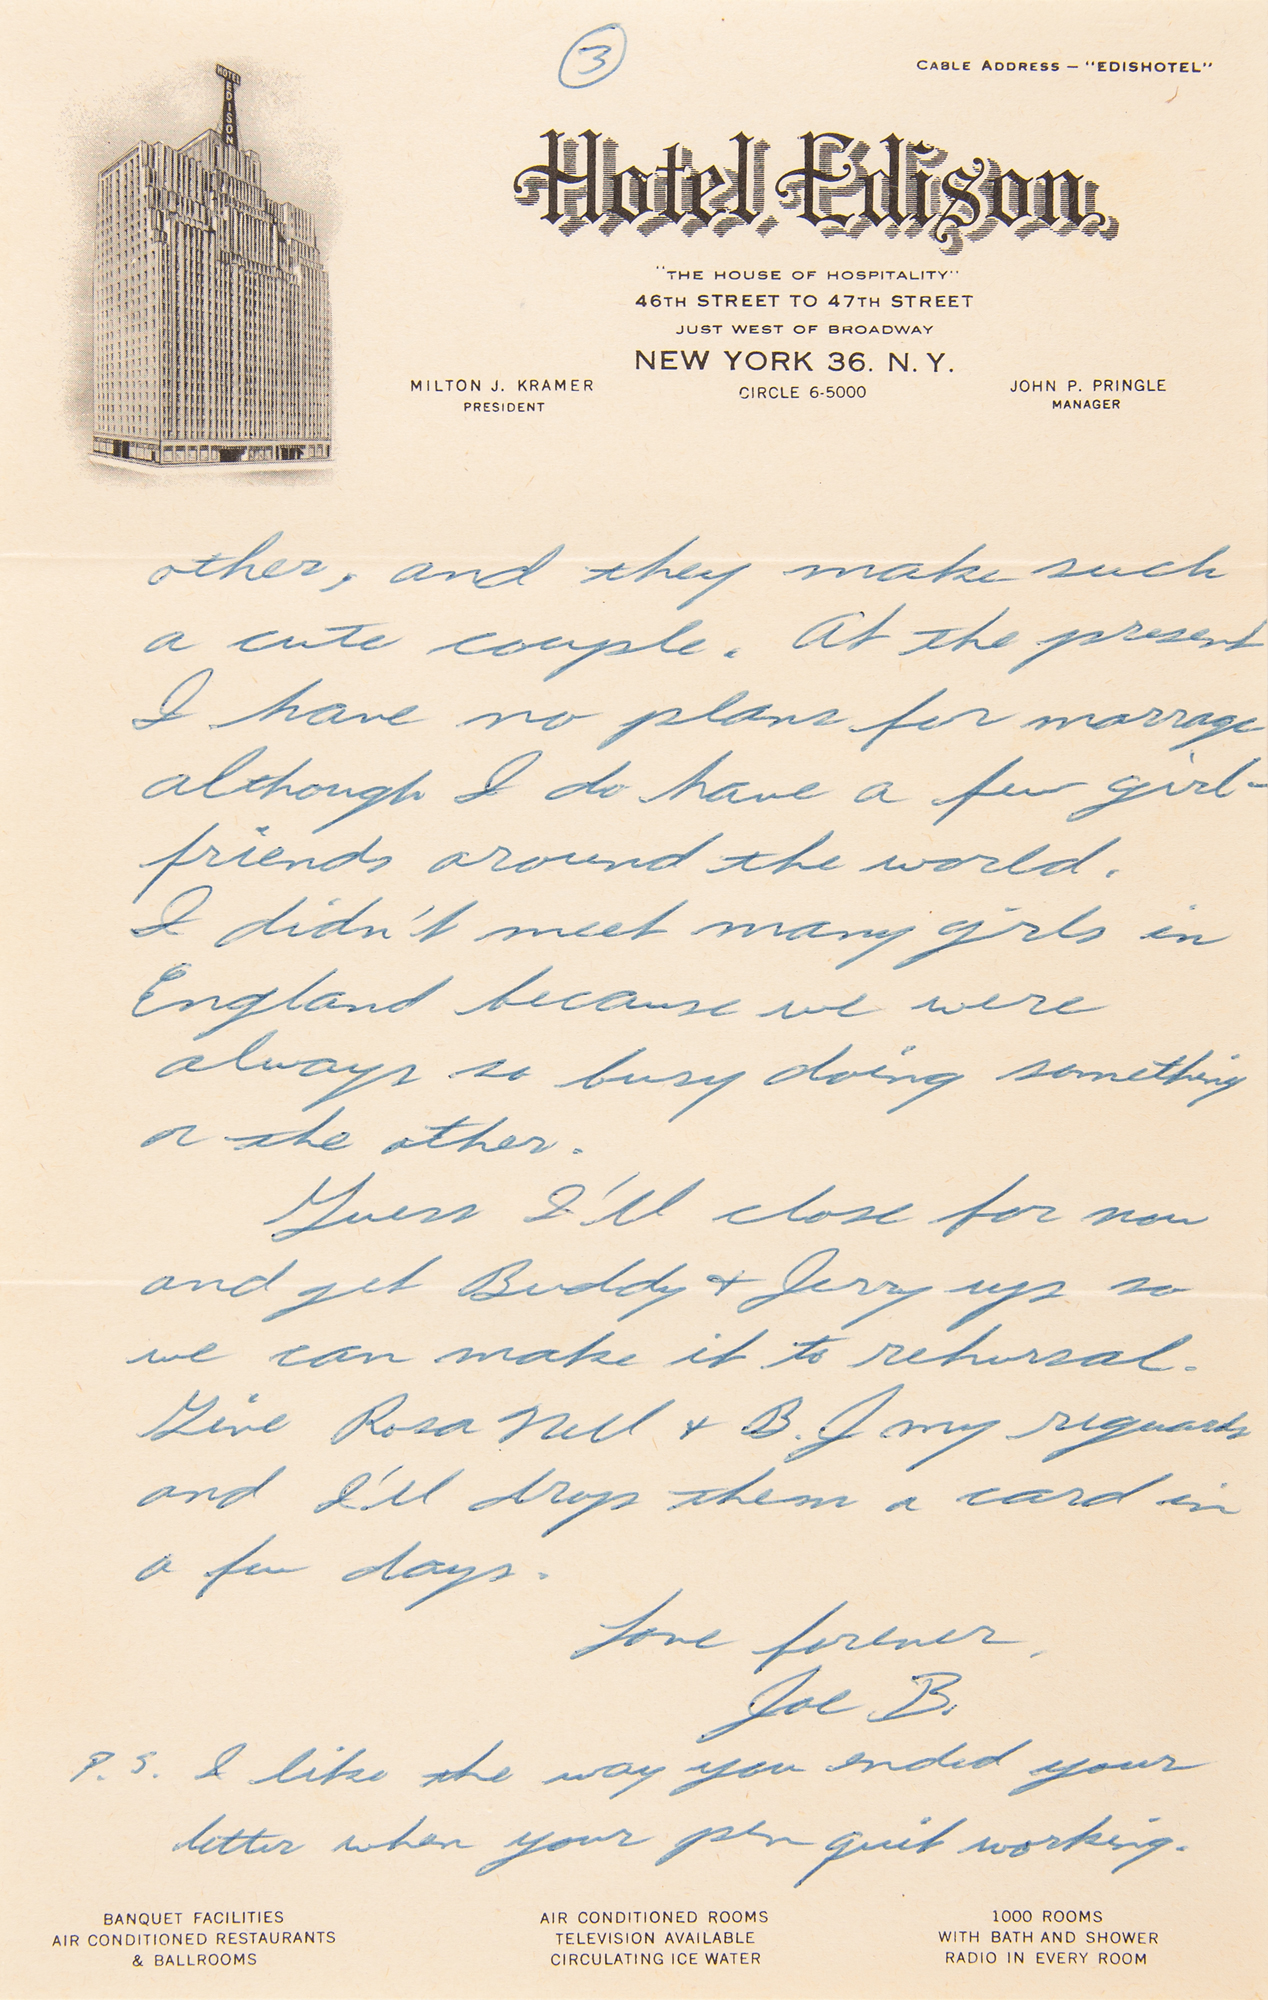 3
CABLE ADDRESS – "EDISHOTEL"
HOTEL
EDISON
Hotel Edison
"THE HOUSE OF HOSPITALITY"
46TH STREET TO 47TH STREET
JUST WEST OF BROADWAY
NEW YORK 36. N.Y.
CIRCLE 6-5000
MILTON J. KRAMER
PRESIDENT
JOHN P. PRINGLE
MANAGER
other, and they make such
a cute couple. At the present
I have no plans for marrage
although I do have a few girl-
friends around the world.
I didn't meet many girls in
England because we were
always so busy doing something
or the other.
Guess I'll close for now
and get Buddy & Jerry up so
we can make it to rehursal.
Give Rosa Nell & B.J my reguards
and I'll drop them a card in
a few days.
Love forever,
Joe B.
P.S. I like the way you ended your
letter when your pen quit working.
BANQUET FACILITIES
AIR CONDITIONED RESTAURANTS
& BALLROOMS
AIR CONDITIONED ROOMS
TELEVISION AVAILABLE
CIRCULATING ICE WATER
1000 ROOMS
WITH BATH AND SHOWER
RADIO IN EVERY ROOM